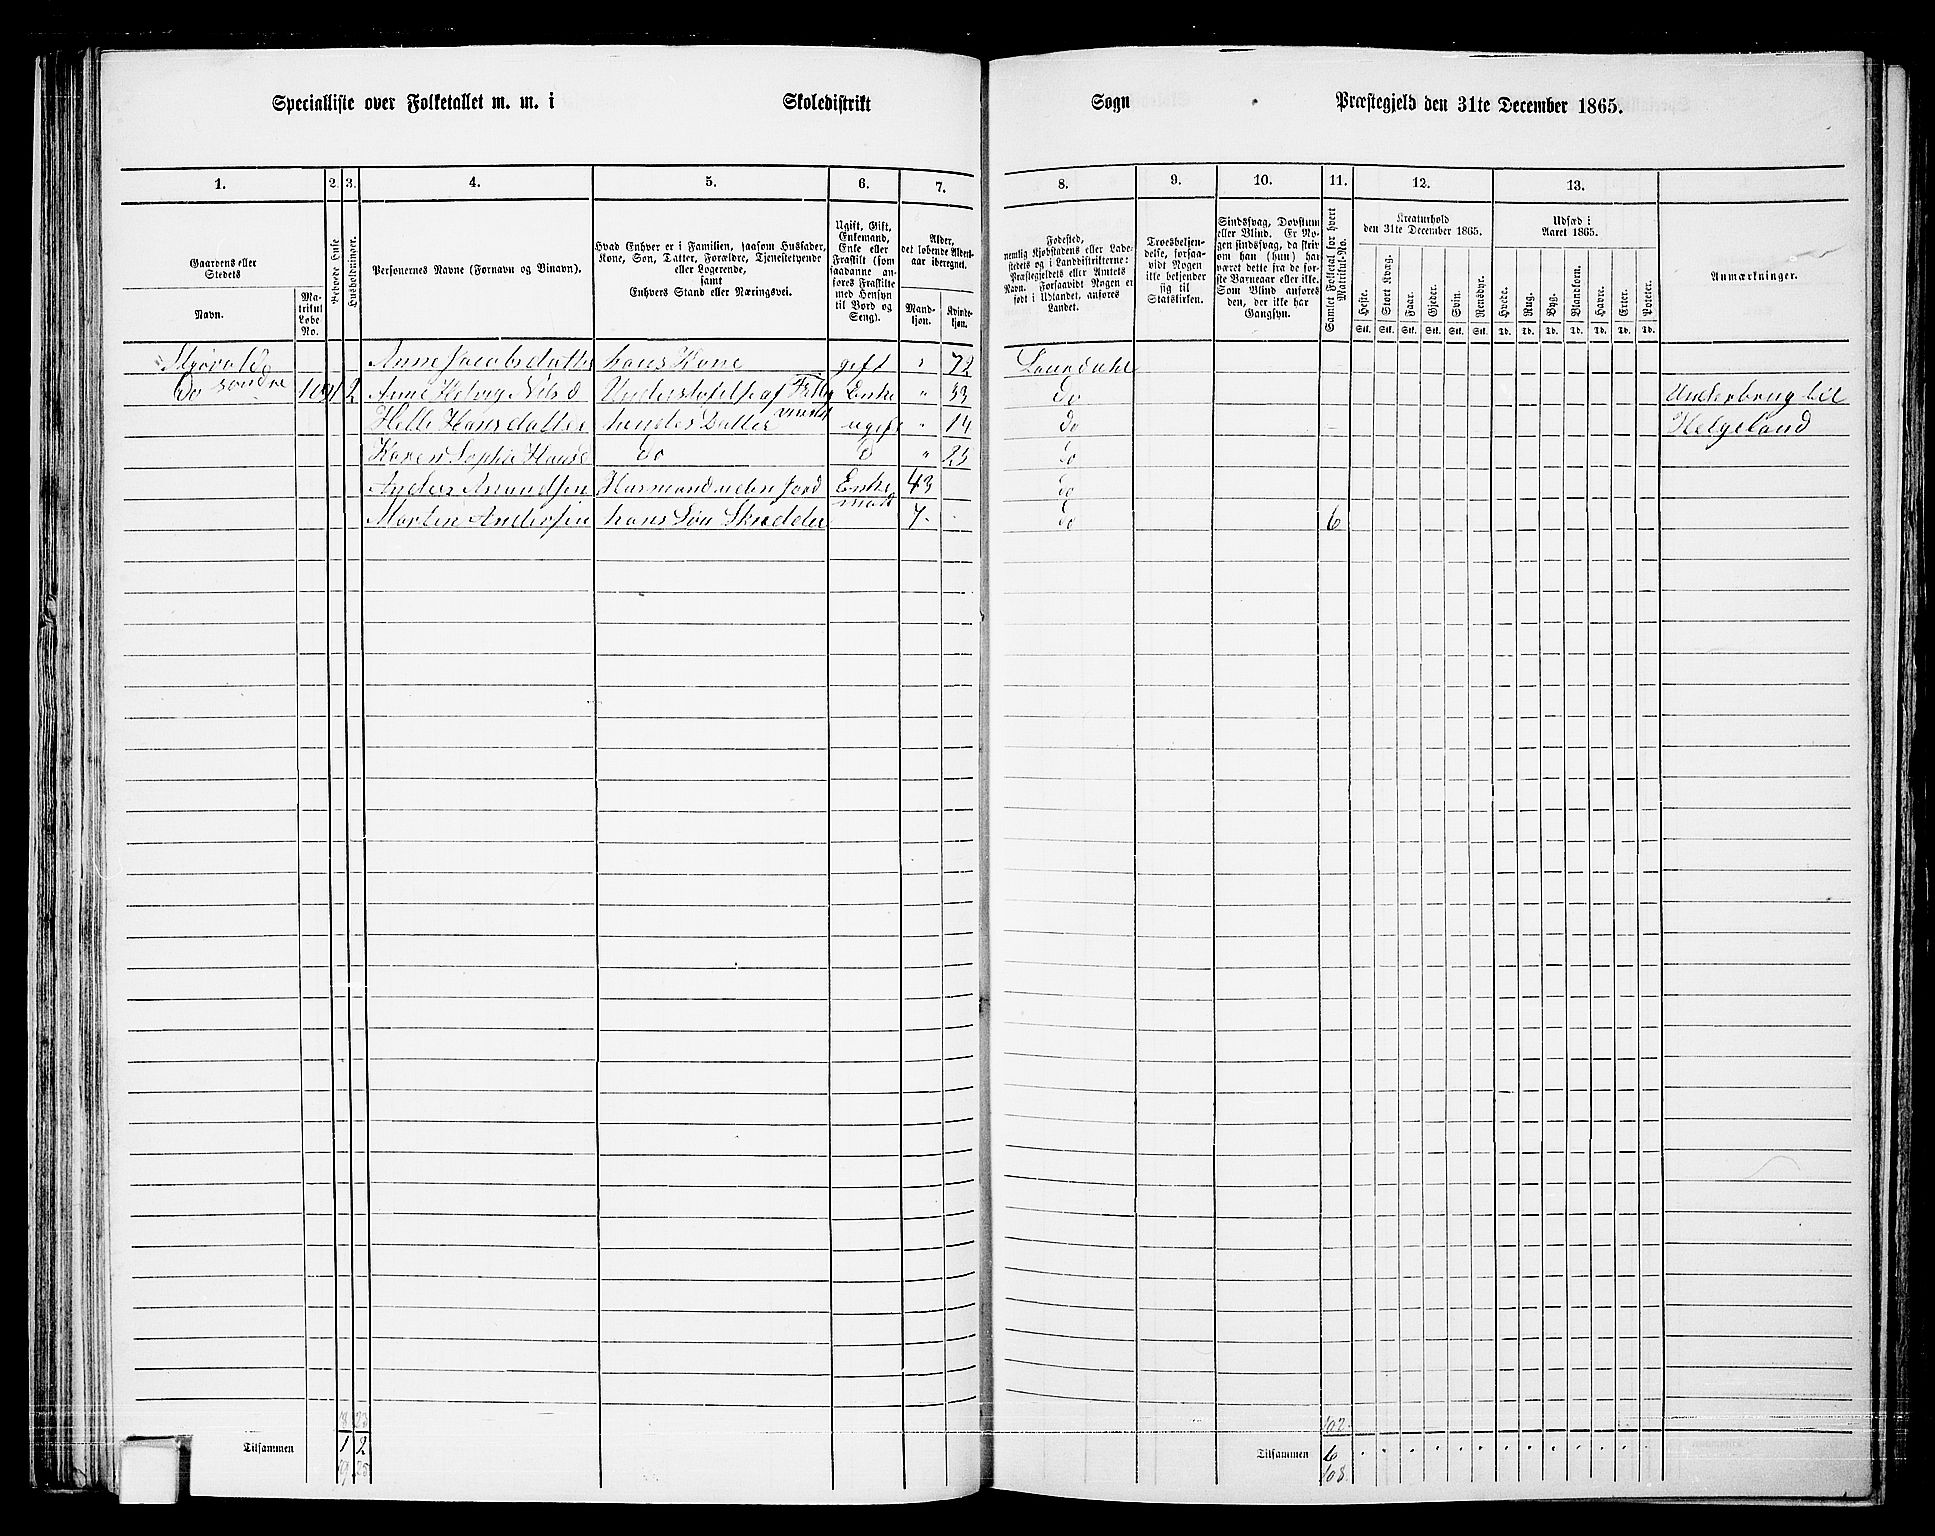 Specialliste over Folketallet m. m. i Skoledistrikt Sogn Præstegjeld den 31te December 1865.
1. 2. 3. 4. 5. 6. 7. 8. 9. 10. 11. 12. 13.
Gaardens eller Stedets
Navn.
Matrikul Løbe No.
Beboede Huse
Husholdninger.
Personernes Navne (Fornavn og Binavn).
Hvad Enhver er i Familien, saasom Husfader, Kone, Søn, Datter, Forældre, Tjenestetyende eller Logerende, samt Enhvers Stand eller Næringsvei.
Ugift, Gift, Enkemand, Enke eller Fraskilt (som saadanne anføres Fraskilte med Hensyn til Bord og Seng).
Alder, det løbende Aldersaar iberegnet.
Mandkjøn.
Kvindekjøn.
Fødested, nemlig Kjøbstadens eller Ladestedets og i Landdistrikterne: Præstegjeldets eller Amtets Navn. Forsaavidt Nogen er født i Udlandet, anføres Landet.
Troesbekjendelse, forsaavidt Nogen ikke bekjender sig til Statskirken.
Sindssvag, Døvstum eller Blind. Er Nogen sindssvag, da skrives om han (hun) har været dette fra de første Barneaar eller ikke. Som Blind anføres den, der ikke har Gangsyn.
Samlet Folketal for hvert Matrikul-No.
Kreaturhold den 31te December 1865.
Heste. Stort Kvæg. Faar. Gjeder. Svin. Rensdyr.
Stk. Stk. Stk. Stk. Stk. Stk.
Udsæd i Aaret 1865.
Hvede. Rug. Byg. Blandkorn. Havre. Erter. Poteter.
Td. Td. Td. Td. Td. Td. Td.
Anmærkninger.
Anne Jacobsdatter hans Kone gift " 72 Laurdahl
Do søndre 109 1 2 Anne Hedvig Nils D Understøttelse af Enke " 53 do Underbrug til
Helle Hansdatter hendes Datter ugift " 14 do Helgeland
Karen Sophie Hansd do d " 23 do
Anders Amundsen Husmand uden Jord Enkemand 43 do
Morten Andersen hans Søn Skrædder 7 do 6
8 23 102
Tilsammen 1 2 Tilsammen 6
9 25 108